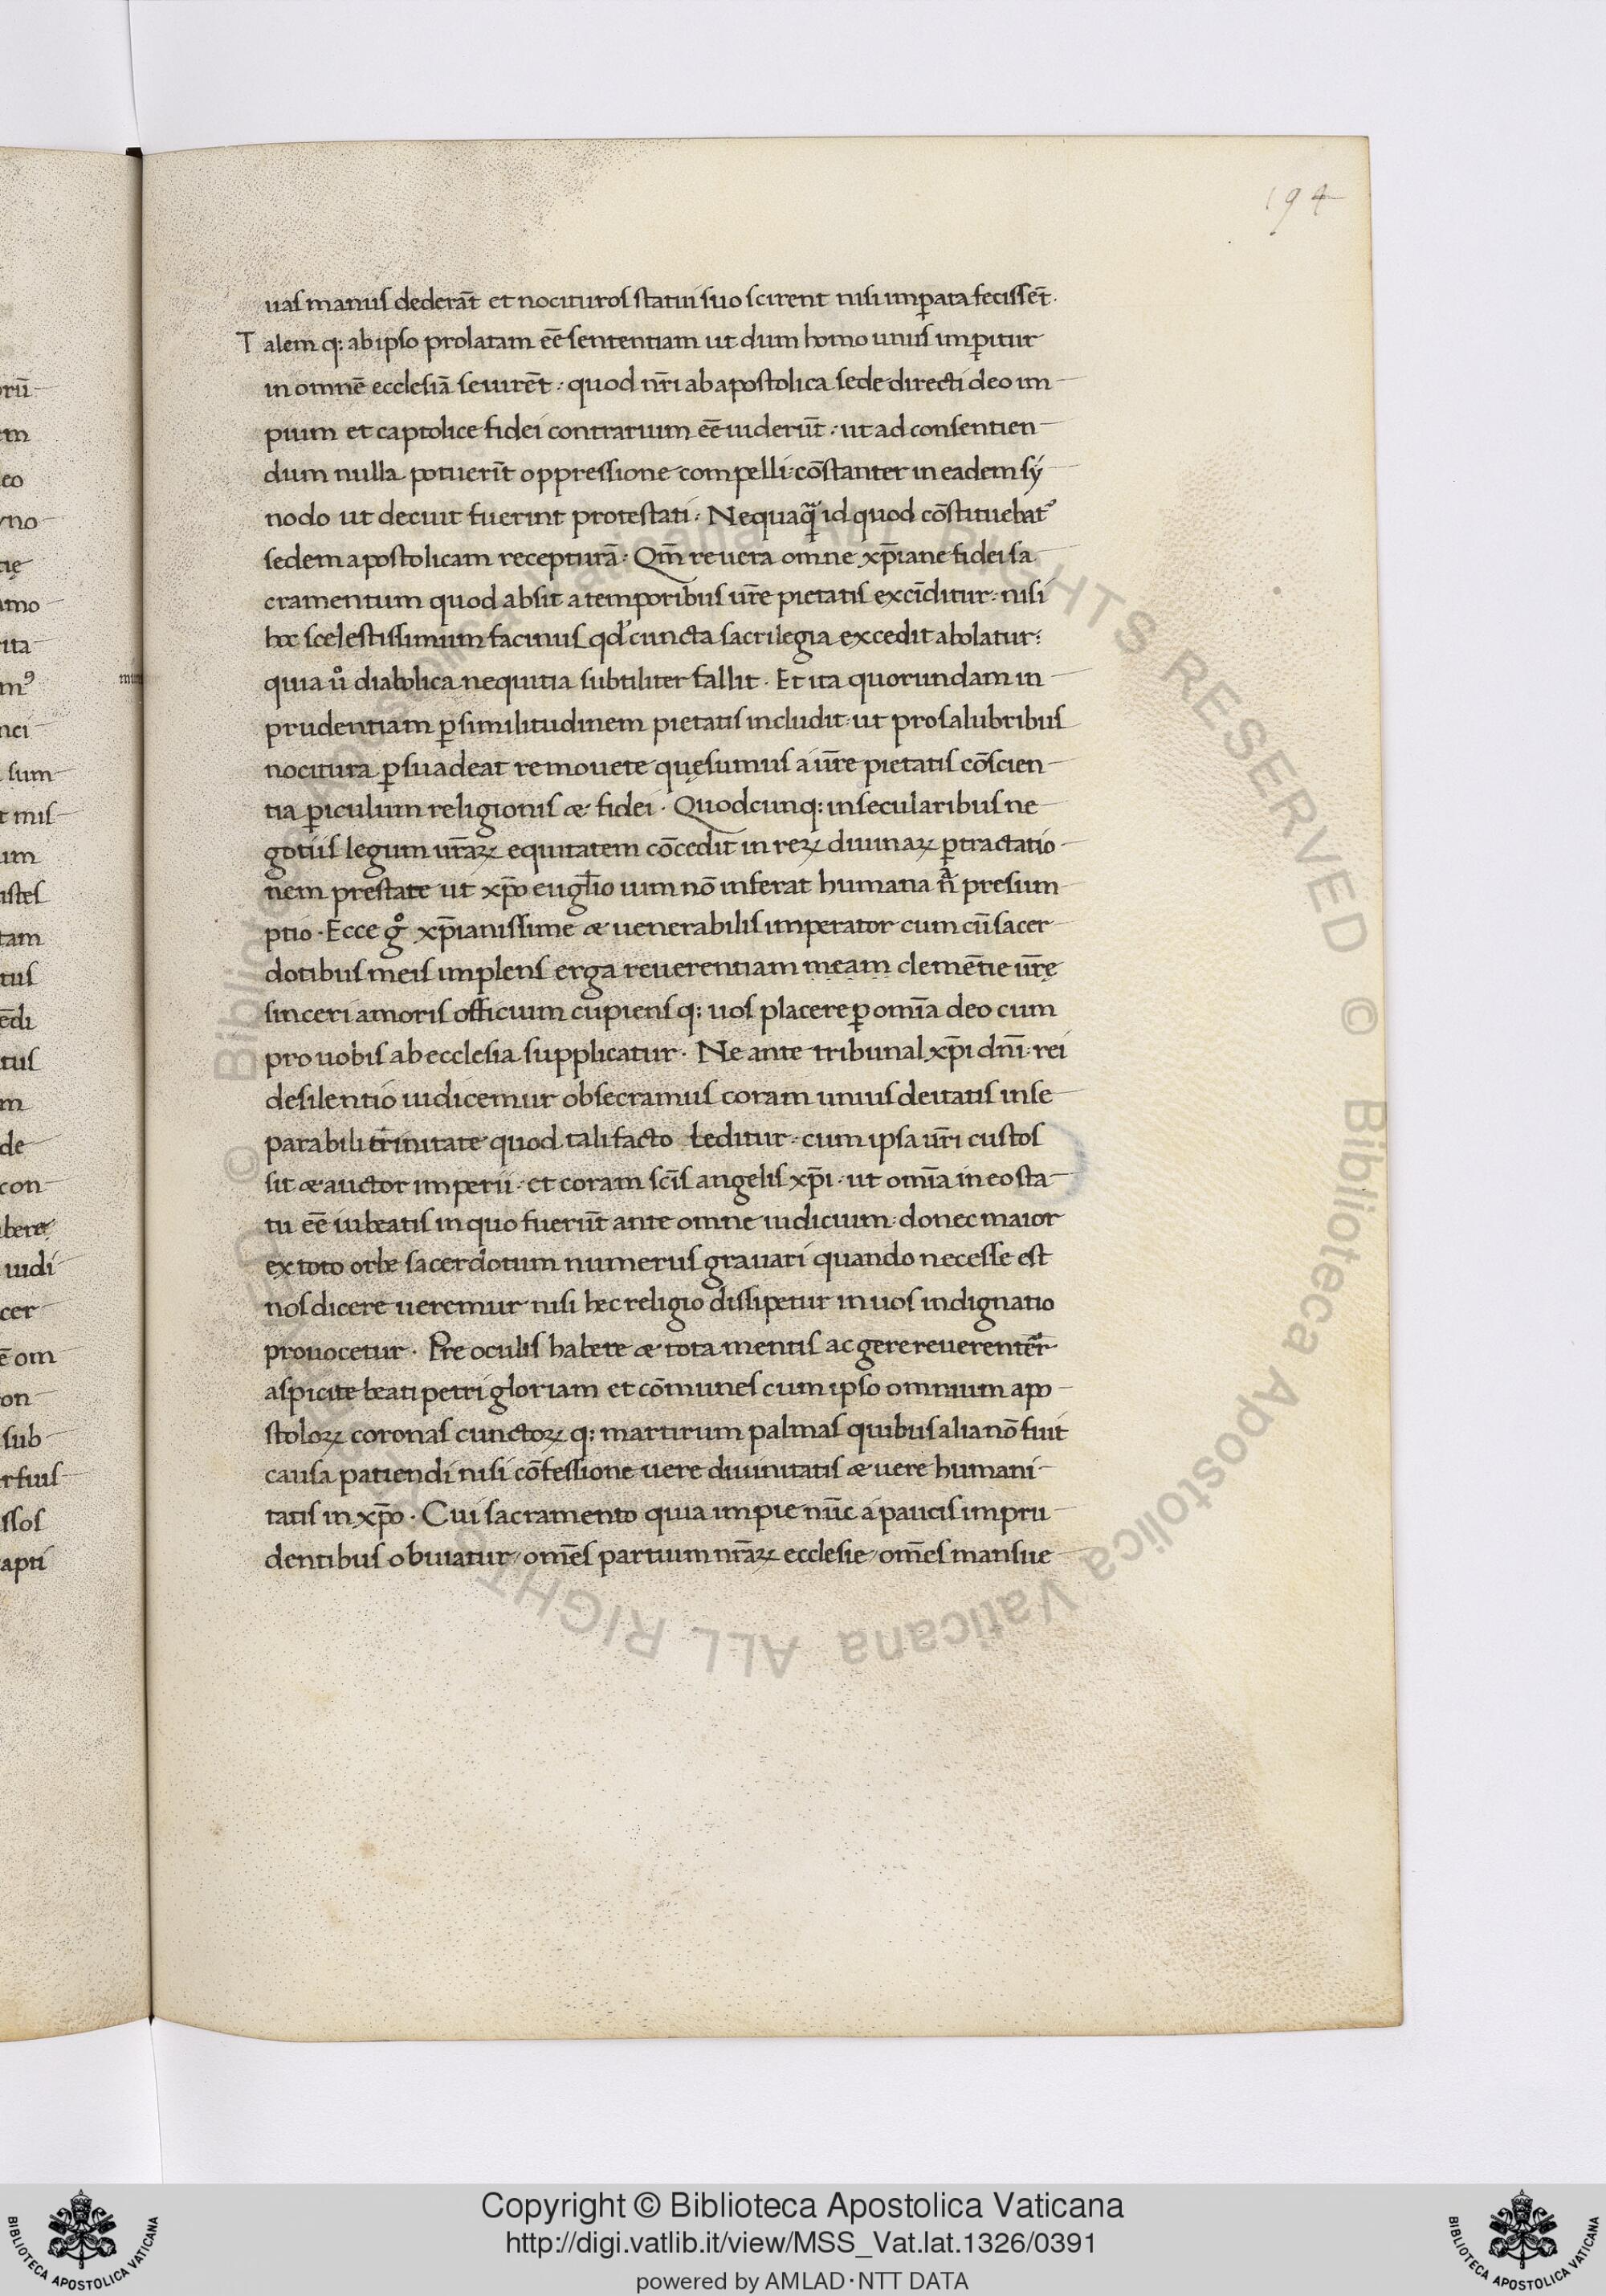 194
uas manus dederāt et nocituros statui suo scirent nisi imꝑata fecissēt.
Talem q: ab ipso prolatam eē sententiam ut dum homo unus imꝑitur
in omnē ecclesiā seuirēt · quod nr̄i ab apostolica sede directi deo im
pium et captolice fidei contrarium eē uiderūt · ut ad consentien
dum nulla potuerīt oppressione compelli · cōstanter in eadem sy
nodo ut decuit fuerint protestati · Nequaq̄ id quod cōstituebat᷒
sedem apostolicam recepturā · Qm̄ reuera omne xp̄iane fidei sa
cramentum quod absit a temporibus ur̄e pietatis excīditur · nisi
hoc scelestissimum facinus qd̓ cuncta sacrilegia excedit abolatur:
quia uͦ diabolica nequitia subtiliter fallit · Et ita quorundam in
prudentiam ꝑ similitudinem pietatis includit · ut pro salubribus
nocitura ꝑsuadeat remouete quęsumus a ur̄e pietatis cōscien
tia ꝑiculum religionis æ fidei · Quodcunq: in secularibus ne
gotiis legum ur̄aꝝ equitatem cōcedit in reꝝ diuinaꝝ ꝑtractatio
nem prestate ut xp̄o euglīo uim nō inferat humana presum
ptio · Ecce gͦ xp̄ianissime æ uenerabilis imperator cum cū sacer
dotibus meis implens erga reuerentiam meam clemētie ur̄ę
sinceri amoris officium cupiens q: uos placere ꝑ omīa deo cum
pro uobis ab ecclesia supplicatur · Ne ante tribunal xp̄i dnī · rei
de silentio iudicemur obsecramus coram unius deitatis inse
parabili trinitate quod tali facto leditur · cum ipsa ur̄i custos
sit æ auctor imperii · et coram scīs angelis xp̄i · ut omīa in eo sta
tu eē iubeatis in quo fuerūt ante omne iudicium · donec maior
ex toto orbe sacerdotum numerus grauari quando necesse est
nos dicere ueremur nisi hec religio dissipetur in uos indignatio
prouocetur · Pre oculis habete æ tota mentis ac gere reuerenter
aspicite beati petri gloriam et cōmunes cum ipso omnium apo
stoloꝝ coronas cunctoꝝ q: martirum palmas quibus alia nō fuit
causa patiendi nisi cōfessione uere diuinitatis æ uere humani
tatis in xp̄o · Cui sacramento quia impie nūc a paucis impru
dentibus obuiatur / omēs partium nr̄aꝝ ecclesie / omēs mansue
rū
em
eo
yno
tię
amo
rita
m᷒
nci
sum
t mis
um
istes
tam
tus
ēdi
tus
m
de
con
bere
iudi
cer
ē om
on
sub
r fuis
ssos
apti
© Biblioteca Apostolica Vaticana ALL RIGHTS RESERVED © Biblioteca Apostolica Vaticana ALL RIGHTS RESERVED
BIBLIOTECA APOSTOLICA VATICANA
Copyright © Biblioteca Apostolica Vaticana
http://digi.vatlib.it/view/MSS_Vat.lat.1326/0391
powered by AMLAD·NTT DATA
BIBLIOTECA APOSTOLICA VATICANA